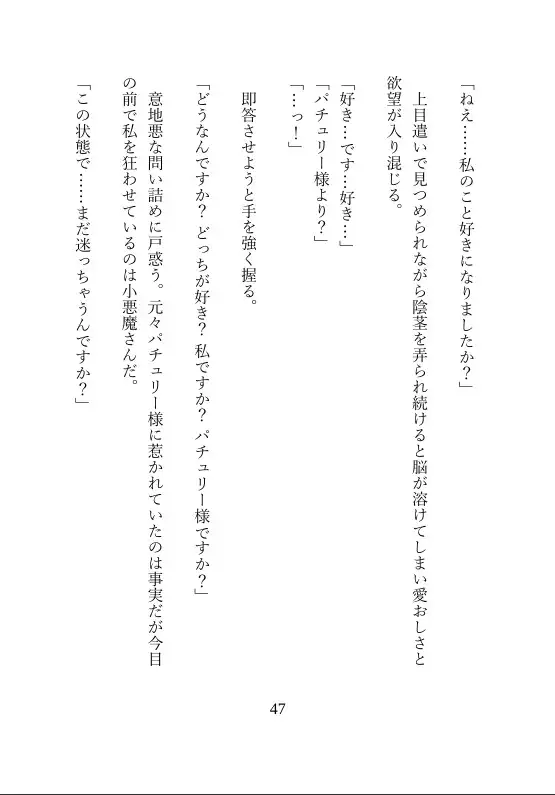 「ねえ……私のこと好きになりましたか？」
上目遣いで見つめられながら陰茎を弄られ続けると脳が溶けてしまい愛おしさと
欲望が入り混じる。
「好き…です…好き…」
「パチュリー様より？」
「…っ！」
即答させようと手を強く握る。
「どうなんですか？ どっちが好き？ 私ですか？ パチュリー様ですか？」
意地悪な問い詰めに戸惑う。元々パチュリー様に惹かれていたのは事実だが今目
の前で私を狂わせているのは小悪魔さんだ。
「この状態で……まだ迷っちゃうんですか？」
47